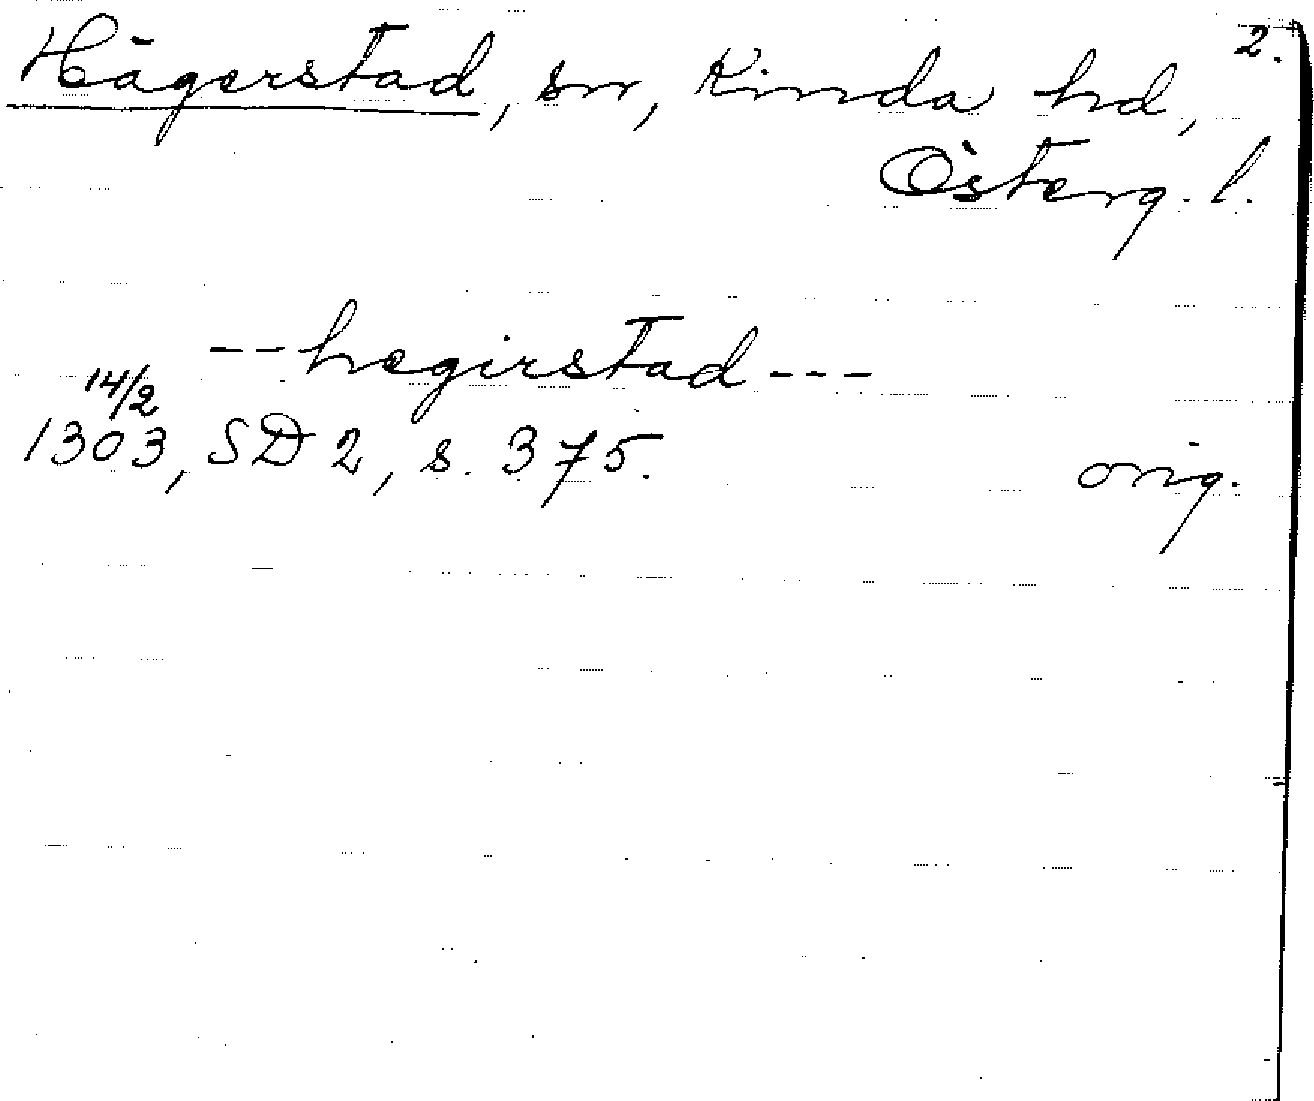 2.
Hägerstad, sn, Kinda hd,
Österg. l.
--hægirstad---
14/2
1303, SD 2, s. 375. orig.